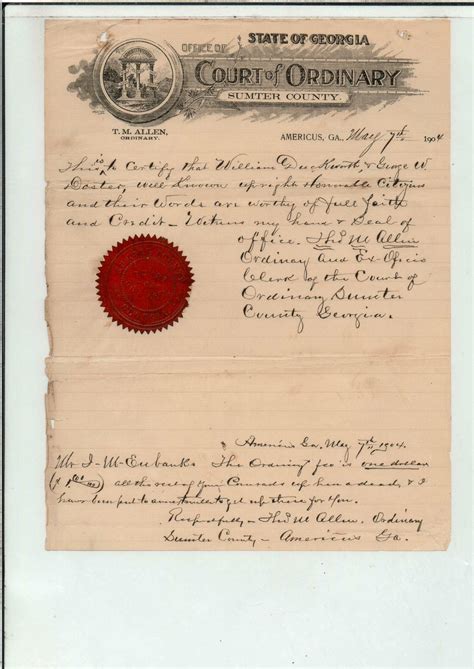 STATE OF GEORGIA
OFFICE OF
COURT OF ORDINARY
SUMTER COUNTY.
T. M. ALLEN,
ORDINARY.
AMERICUS, GA., May 7th 1904
This is to Certify that William Duckworth & George W.
Doster, well Known upright Honorable Citizens
and their Words are worthy of full faith
and Credit – Witness my hand & Seal of
office. Thos M Allen
Ordinary and Ex Oficio
Clerk of the Court of
Ordinary Sumter
County Georgia.
Americus Ga, May 7th 1904.
Mr I-M-Eubanks The Ordinary fee is one dollar
($1 00/100) all the rest of your Comrads up here dead, & I
have been put to to get up these for you.
Respectfully – Thos M Allen, Ordinary
Sumter County – Americus Ga.